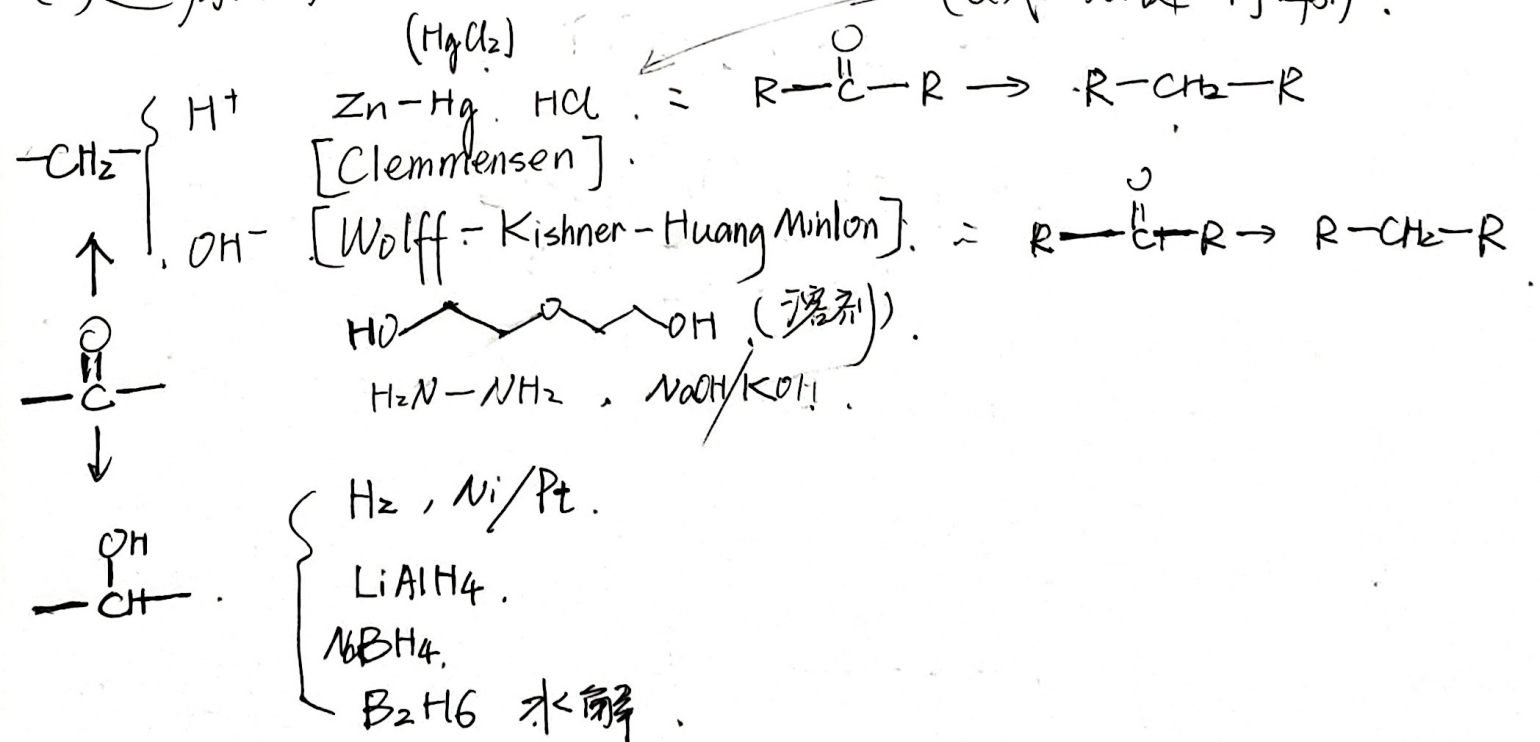 (HgCl2)
H+ Zn-Hg. HCl. = R-C(=O)-R → R-CH2-R
-CH2-
[Clemmensen].
OH- [Wolff-Kishner-Huang Minlon]. = R-C(=O)-R → R-CH2-R
HO O OH (溶剂).
O
C
H2N-NH2, NaOH/KOH.
H2, Ni/Pt.
OH
CH
LiAlH4.
NaBH4.
B2H6 水解.